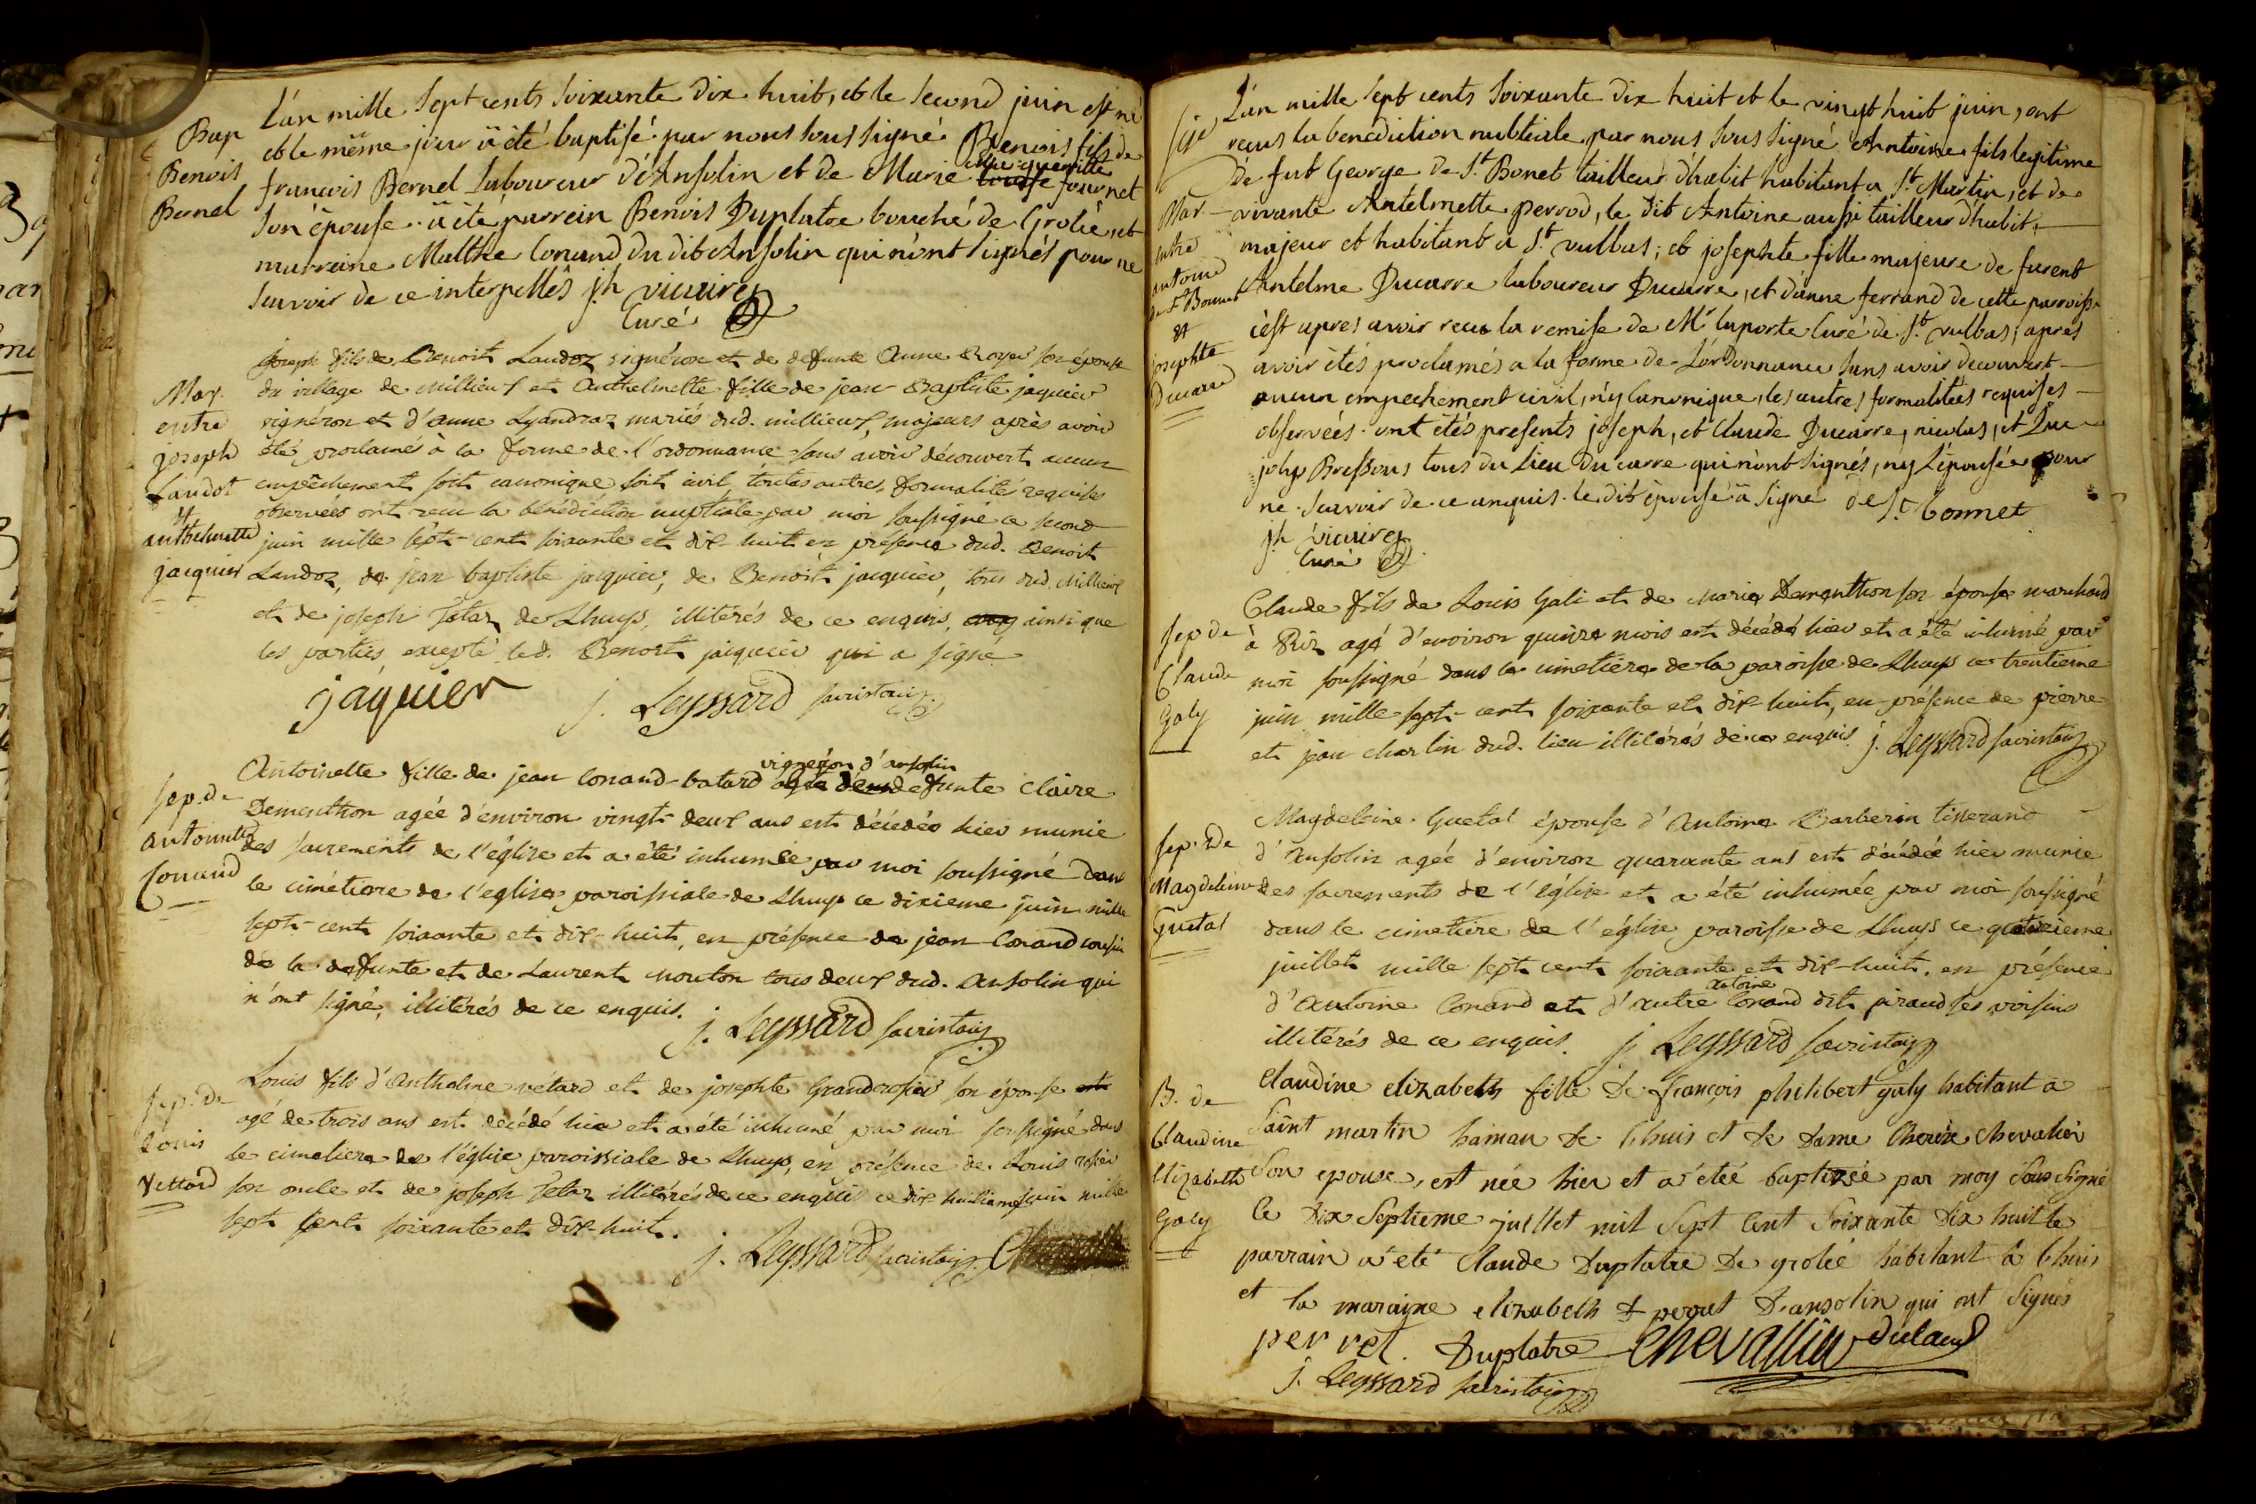 Bap
Benois
Bernel
L'an mille sept cents soixante dix huit, et le second juin est né
et le même jour a été baptisé par nous sous signé Benois fils de
francois Bernel laboureur d'Ansolin et de Marie fournet
son épouse. a été parrein Benois Duplatre bouché de Grolé, et
marreine Malthe Conand du dit Ansolin qui n'ont signés pour ne
savoir de ce interpellés jh vicaire
Curé
Mar.
entre
joseph
Landot
et
anthelmette
jacquier
joseph fils de Benoit Landoz vignéron et de defunte Anne Royer son épouse
du village de millieux et Anthelmette fille de jean Baptiste jaquier
vignéron et d'anne Lyandraz mariés dud. millieux, majeurs après avoir
été proclamés à la forme de l'ordonnance sans avoir découvert aucun
empêchement soit canonique soit civil, toutes autres formalités requises
observées ont recu la bénédiction nuptiale par moi soussigné ce second
juin mille sept-cent soixante et dix-huit en présence dud. Benoit
Landoz, de jean baptiste jacquier, de Benoit jacquier, tous dud. millieux
et de joseph Tetaz de Lhuys, illitérés de ce enquis, ainsi que
les parties excepté led. Benoit jacquier qui a signé
jaquier j. Leyssard sacristain
Sep. de
antoinette
Conand
vigneron d'ansolin
Antoinette fille de jean Conand-batard defunte Claire
Dementhon agée d'environ vingt-deux ans est décédée hier munie
des sacrements de l'église et a été inhumée par moi soussigné dans
le cimétiere de l'eglise paroissiale de Lhuys ce dixieme juin mille
sept-cent soixante et dix-huit, en présence de jean Conand cousin
de la defunte et de Laurent mouton tous deux dud. Ansolin qui
n'ont signé, illitérés de ce enquis.
j. Leyssard sacristain
Sep. de
Louis
Vettard
Louis fils d'Anthelme vétard et de josephte Grandrosier son épouse
agé de trois ans est décédé hier et a été inhumé par moi soussigné dans
le cimetiere de l'église paroissiale de Lhuys, en présence de Louis rosier
son oncle et de joseph Tetaz illitérés de ce enquis ce dix huitieme juin mille
sept cent soixante et dix-huit.
j. Leyssard sacristain
Mar
entre
antoine
de St Bonnet
et
josephte
Ducarre
L'an mille sept cents soixante dix huit et le vingt huit juin, ont
reçus la benediction nubtiale par nous sous signé Antoine fils legitime
de fut George de St. Bonet tailleur d'habit habitant a St. Martin, et de
vivante Antelmette perrod, le dit Antoine aussi tailleur d'habit,
majeur et habitant a St. vulbas; et josephte fille majeure de furent
Antelme Ducarre laboureur Ducarre, et d'anne ferrand de cette parroisse
c'est apres avoir recu la remise de Mr laporte Curé de St. vulbas; après
avoir étés proclamés a la forme de L'ordonnance sans avoir decouvert
aucun empechement civil, n'y Canonique, les autres formalitées requises
observées. ont étés presents joseph, et Claude Ducarre, nicolas, et
joly Bressons tous du Lieu Ducarre qui n'ont signés, n'y L'épousée pour
ne savoir de ce anquis. le dit épousé a signé de St. bonnet
jh vicaire
Curé
Sep de
Claude
Galy
Claude fils de Louis Gali et de marie Dementhon son épouse marchand
à Rix agé d'environ quinze mois est décédé hier et a été inhumé par
moi soussigné dans le cimetiere de la paroisse de Lhuys ce trentieme
juin mille sept-cent soixante et dix-huit, en présence de pierre
et jean charlin dud. lieu illitérés de ce enquis. j. Leyssard sacristain
Sep. De
Magdeleine
Guetat
Magdeleine Guetat épouse d'Antoine Barberin tisserand
d'Ansolin agée d'environ quarante ans est décédée hier munie
des sacrements de l'église et a été inhumée par moi soussigné
dans le cimetiere de l'église paroisse de Lhuys ce quatorzieme
juillet mille sept cent soixante et dix-huit. en présence
d'Antoine Conand et d'autre antoine Conand dit piraud ses voisins
illitérés de ce enquis. j. Leyssard sacristain
B. de
Claudine
Elizabeth
Galy
Claudine elizabeth fille De françois philibert galy habitant a
Saint martin hamau De Lhuis et De Dame Chevalier
Son epouse, est née hier et a étéé baptizée par moy Sous Signé
Ce Dix Septieme juillet mil Sept Cent Soixante Dix huit le
parrain a été Claude Duplatre De grolée habitant à Lhuis
et la maraine elizabeth perret D'ansolin qui ont Signés
perret. Duplatre Chevallier
j. Leyssard sacristain